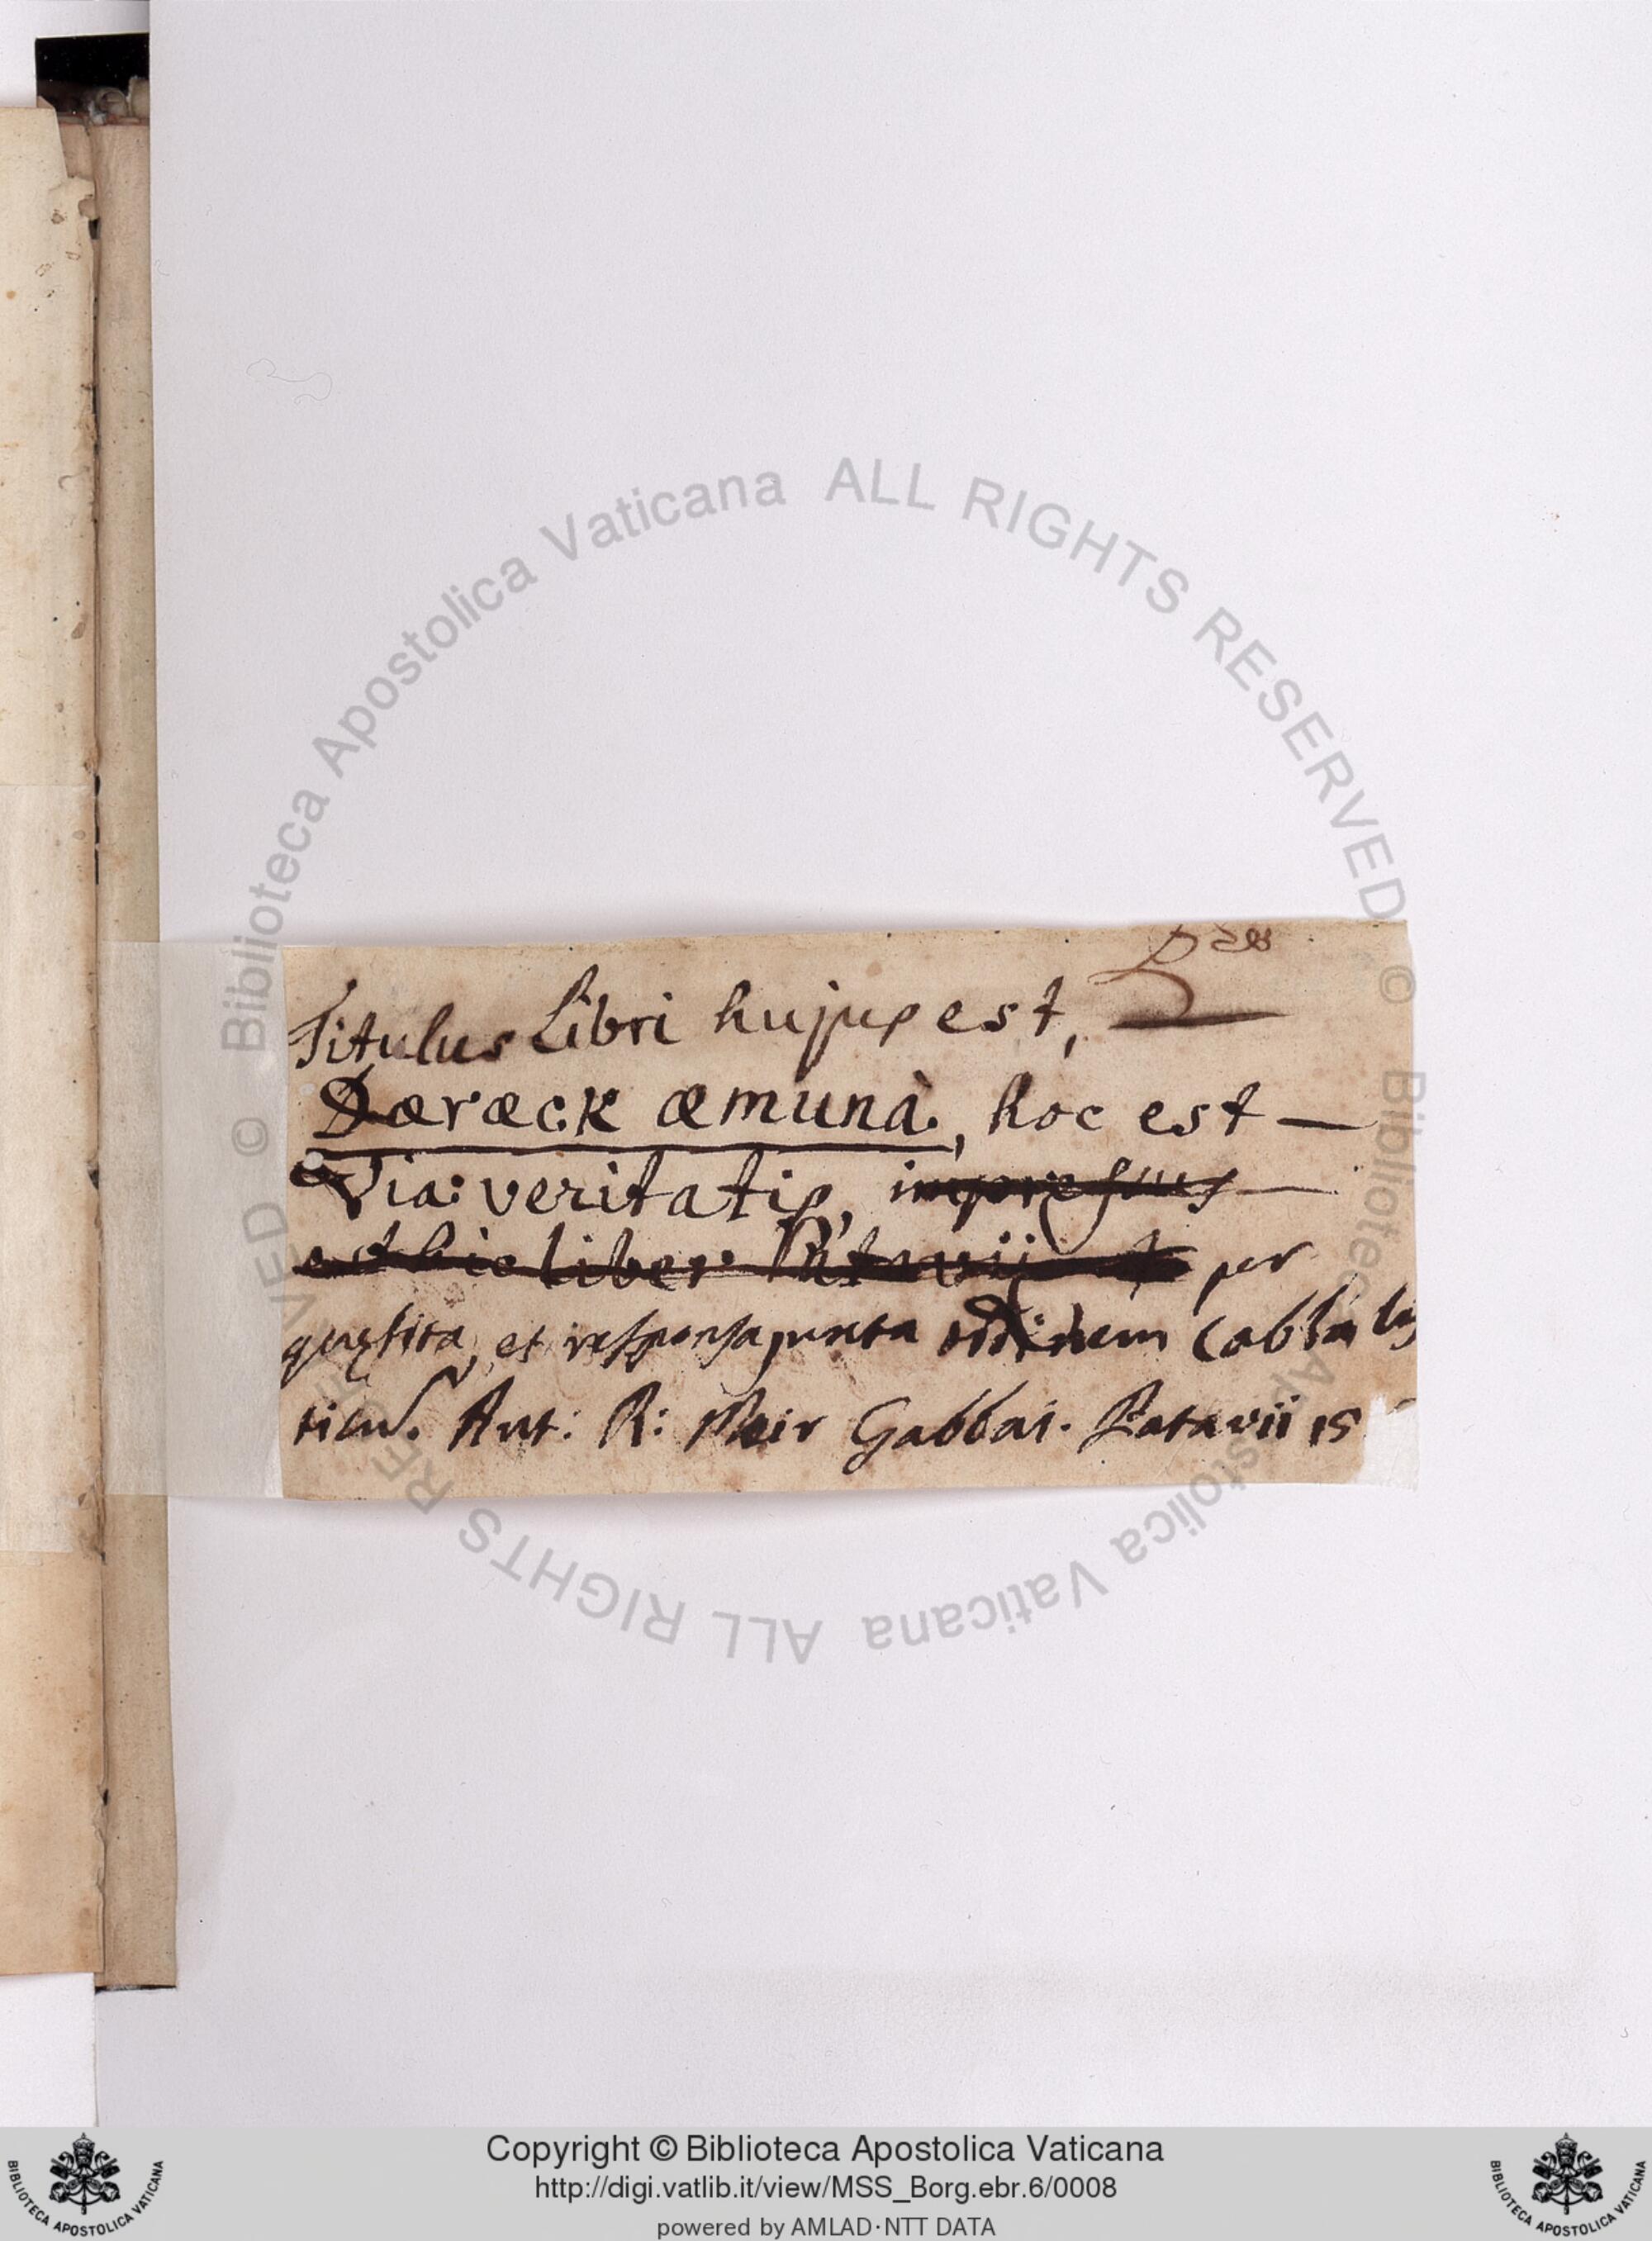 Titulus Libri hujus est,
Daræck æmunà, hoc est —
Via: veritatis, impressus —
est hic liber Patavii per
quęsita, et responsa juxta ordinem Cabbalis
ticū. Aut: R: Meir Gabbai. Patavii 15
© Biblioteca Apostolica Vaticana ALL RIGHTS RESERVED
© Biblioteca Apostolica Vaticana ALL RIGHTS RESERVED
Copyright © Biblioteca Apostolica Vaticana
http://digi.vatlib.it/view/MSS_Borg.ebr.6/0008
powered by AMLAD·NTT DATA
BIBLIOTECA APOSTOLICA VATICANA
BIBLIOTECA APOSTOLICA VATICANA